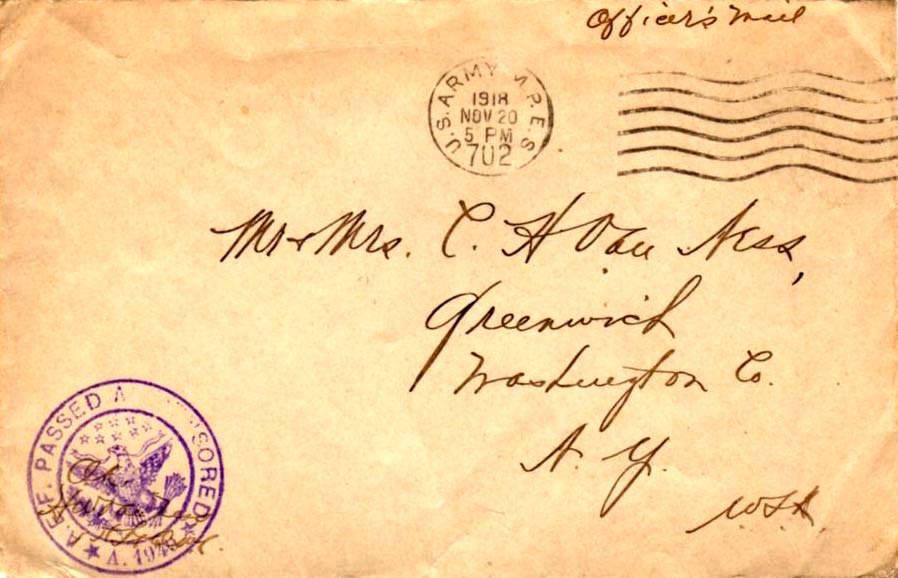 Officer's Mail
U.S. ARMY M.P.E.S.
1918
NOV 20
5 PM
702
Mr & Mrs. C. H Van Ness,
Greenwich
Washington Co.
N. Y.
USA
A.E.F. PASSED A SORED
OK